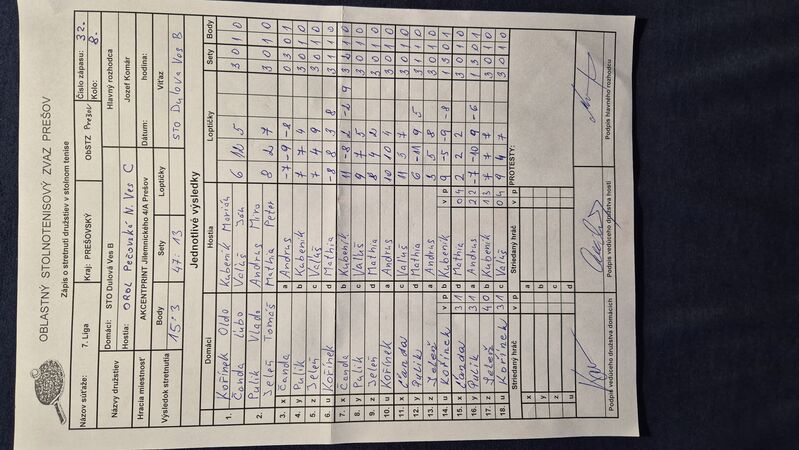 OBLASTNÝ STOLNOTENISOVÝ ZVAZ PREŠOV
Zápis o stretnutí družstiev v stolnom tenise
Názov súťaže: 7. Liga Kraj: PREŠOVSKÝ ObSTZ Prešov Číslo zápasu: 32.
Kolo: 8.
Názvy družstiev Domáci: STO Dulová Ves B Hlavný rozhodca
Hostia: OROL Pečovská N. Ves C Jozef Komár
Hracia miestnosť AKCENTPRINT Jilemnického 4/A Prešov Dátum: hodina:
Výsledok stretnutia Body Sety Loptičky Víťaz
15:3 47:13 STO Dulova Ves B
Jednotlivé výsledky
Domáci Hostia Loptičky Sety Body
1. Kořínek Oldo Kubeník Marián
Čanda Ľubo Valuš Ján 6 10 5 3 0 1 0
2. Pulik Vlado Andraš Miro
Jeleň Tomáš Mathia Peter 8 2 7 3 0 1 0
3. x Čanda a Andraš -7 -9 -8 0 3 0 1
4. y Pulik b Kubeník 7 7 4 3 0 1 0
5. z Jeleň c Valuš 7 4 9 3 0 1 0
6. u Kořínek d Mathia -8 8 3 8 3 1 1 0
7. x Čanda b Kubeník 11 -8 2 9
8. y Pulik c Valuš 9 7 5 3 0 1 0
9. z Jeleň d Mathia 8 4 2 3 0 1 0
10. u Kořínek a Andraš 10 10 4 3 0 1 0
11. x Čanda c Valuš 11 3 7 3 0 1 0
12. y Pulik d Mathia 6 -11 9 5 3 1 1 0
13. z Jeleň a Andraš 3 5 8 3 0 1 0
14. u Kořínek b Kubeník 9 -5 -9 -8 1 3 0 1
v p v p
15. x Čanda 3 1 d Mathia 0 4 2 2 2 3 0 1 0
16. y Pulik 3 1 a Andraš 2 2 -7 -10 9 -6 1 3 0 1
17. z Jeleň 4 0 b Kubeník 1 3 7 7 7 3 0 1 0
18. u Kořínek 3 1 c Valuš 0 4 9 4 7 3 0 1 0
Striedaný hráč v p Striedaný hráč v p PROTESTY:
x a
y b
z c
u d
Podpis vedúceho družstva domácich Podpis vedúceho družstva hostí Podpis hlavného rozhodcu